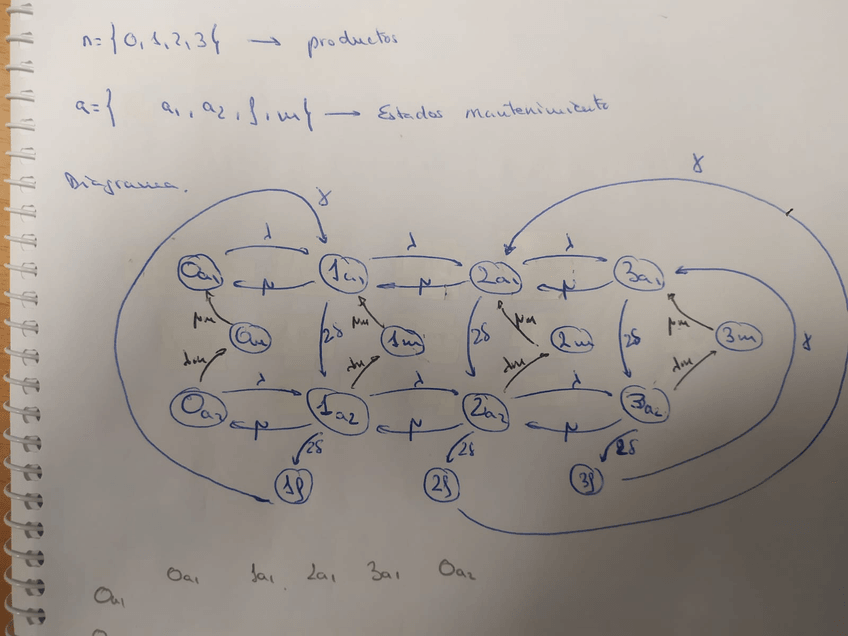 n={0,1,2,3} → productos
a={ a₁, a₂, f, m} → Estados mantenimiento
Diagrama.
γ γ
λ λ λ
0a₁ 1a₁ 2a₁ 3a₁
μ μ μ
μm 2δ μm 2δ μm 2δ μm
0m 1m 2m 3m γ
λm λm λm λm
λ λ λ
0a₂ 1a₂ 2a₂ 3a₂
μ μ μ
2δ 2δ 2δ
1f 2f 3f
0a₁ 1a₁ 2a₁ 3a₁ 0a₂
0a₁